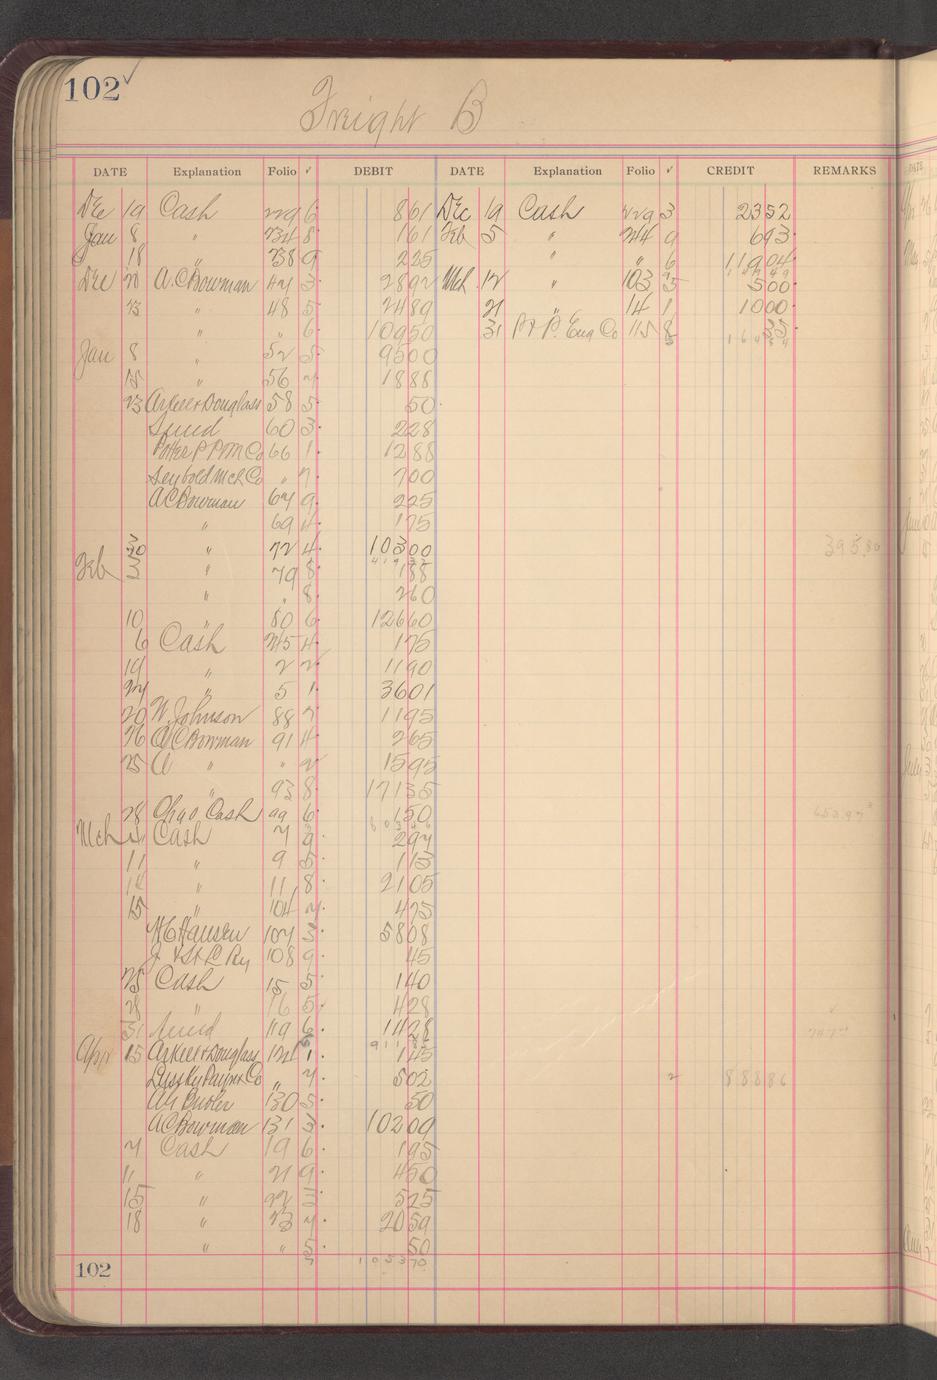 102
Freight B
DATE Explanation Folio ✓ DEBIT DATE Explanation Folio ✓ CREDIT REMARKS
Dec 19 Cash 229 6 861 Dec 19 Cash 229 3 2352
Jan 8 " 234 8 161 Feb 5 " 244 9 693
18 " 238 9 225 " " 6 11904
Dec 20 A.C. Bowman 47 3 2892 Mch 12 " 103 5 500
23 " 48 5 2489 21 " 14 1 1000
" " 6 10950 31 P & P. Eng Co 115 8 35
Jan 8 " 52 5 9500 16484
15 " 56 2 1888
23 Arkell & Douglass 58 5 50
60 3 228
Potter P P M Co 66 1 1288
Seybold Mch Co " 7 700
A C Bowman 67 9 225
" 69 4 175
30 " 72 4 10300 395.80
Feb 3 " 79 8 188
" " 8 260
10 " 80 6 12660
6 Cash 245 4 175
14 " 2 2 1190
24 " 5 1 3601
20 W. Johnson 88 7 1195
26 A C Bowman 91 4 265
25 A " " 2 1595
" 93 8 17135
28 Chgo Cash 99 6 150
Mch Cash 7 9 297
11 " 9 5 115
14 " 11 8 2105
15 " 104 2 475
H C Hansen 107 3 5808
108 9 45
25 Cash 15 5 140
28 " 16 5 428
31 119 6 1428
Apr 15 Arkell & Douglass 124 1 145
" 7 502 88886
130 5 50
A C Bowman 131 3 10209
7 Cash 19 6 195
11 " 21 9 450
15 " 22 3 525
18 " 23 7 2059
" " 5 50
102 105370